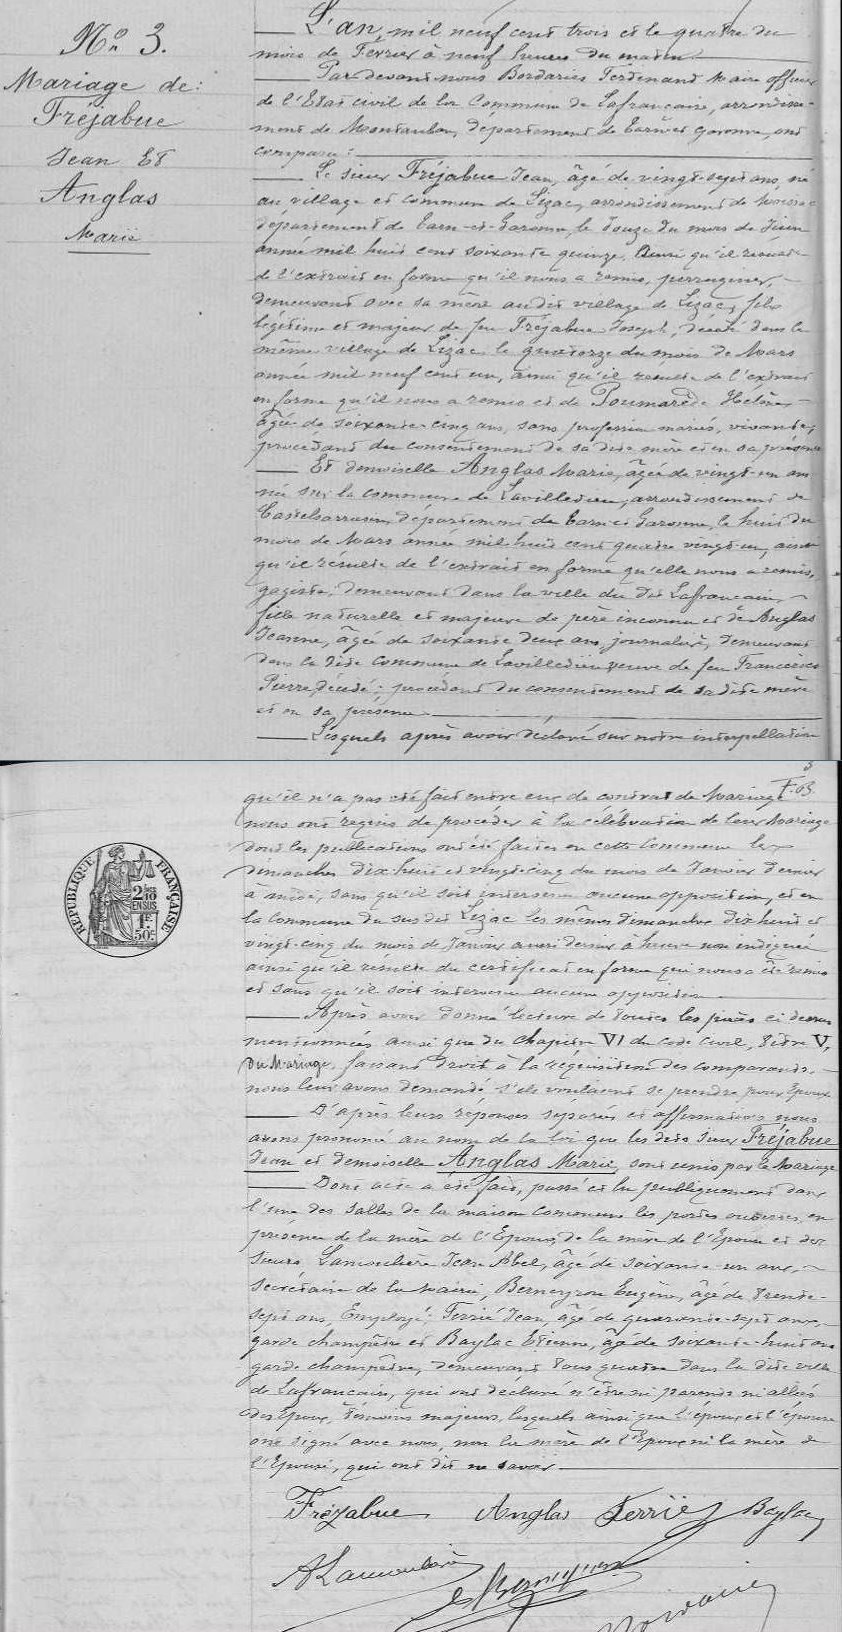 N° 3.
Mariage de:
Fréjabue
Jean Et
Anglas
Marie
L'an, mil neuf cent trois et le quatre du
mois de Février à neuf heures du matin
Par devant nous Bordaries Ferdinand Maire officier
de l'Etat civil de la Commune de Lafrancaise, arrondisse-
ment de Montauban, département de Tarn et Garonne, ont
comparu:
Le sieur Fréjabue Jean, âgé de vingt-sept ans, né
au village et commune de Lizac, arrondissement de Moissac
département de Tarn-et-Garonne, le douze du mois de Juin
année mil huit cent soixante quinze, Ainsi qu'il résulte
de l'extrait en forme qu'il nous a remis,
demeurant avec sa mère audit village de Lizac, fils
légitime et majeur de feu Fréjabue Joseph, décédé dans le
même village de Lizac le quatorze du mois de Mars
année mil neuf cent un, ainsi qu'il résulte de l'extrait
en forme qu'il nous a remis et de Poumarède Hélène
âgée de soixante-cinq ans, sans profession mariés, vivante,
procédant du consentement de sa dite mère et en sa présence
Et demoiselle Anglas Marie, âgée de vingt-un ans
née sur la commune de Lavilledieu, arrondissement de
Castelsarrasin, département de Tarn et Garonne, le huit du
mois de Mars année mil huit cent quatre vingt-un, ainsi
qu'il résulte de l'extrait en forme qu'elle nous a remis,
gagiste, demeurant dans la ville du dit Lafrancaise,
fille naturelle et majeure de père inconnu et de Anglas
Jeanne, âgée de soixante deux ans, journalière, demeurant
dans la dite commune de Lavilledieu veuve de feu
Pierre, décédé; procédant du consentement de sa dite mère
et en sa présence
Lesquels après avoir déclaré sur notre interpellation
3
F. 03
qu'il n'a pas été fait entre eux de contrat de Mariage
nous ont requis de procéder à la célébration de leur Mariage
dont les publications ont été faites en cette Commune les
dimanches dix huit et vingt-cinq du mois de Janvier dernier
à midi, sans qu'il soit intervenu aucune opposition, et en
la commune du susdit Lizac les mêmes dimanches dix huit et
vingt-cinq du mois de Janvier aussi dernier à heure non indiquée
ainsi qu'il résulte du certificat en forme qui nous a été remis
et sans qu'il soit intervenu aucune opposition
Après avoir donné lecture de toutes les pièces ci dessus
mentionnées ainsi que du chapitre VI du code civil, titre V,
Du Mariage, faisant droit à la réquisition des comparants,
nous leur avons demandé s'ils voulaient se prendre pour Epoux
D'après leurs réponses séparées et affirmatives nous
avons prononcé au nom de la loi que les dits sieur Fréjabue
Jean et demoiselle Anglas Marie, sont unis par le Mariage
Dont acte a été fait, passé et lu publiquement dans
l'une des salles de la maison commune les portes ouvertes, en
présence de la mère de l'Epoux, de la mère de l'Epouse et des
sieurs Lamoulière Jean Abel, âgé de soixante-un ans,
Secrétaire de la Mairie, Berneyron Eugène, âgé de trente-
sept ans, Employé; Ferrié Jean, âgé de quarante-sept ans,
garde champêtre et Baylac Etienne, âgé de soixante-huit ans
garde champêtre, demeurant tous quatre dans la dite ville
de Lafrancaise, qui ont déclaré n'être ni parents ni alliés
des Epoux, témoins majeurs, lesquels ainsi que l'époux et l'épouse
ont signé avec nous, non la mère de l'Epoux ni la mère de
l'Epouse, qui ont dit ne savoir
RÉPUBLIQUE FRANÇAISE
2/10 EN SUS
1F. 50c
Fréjabue Anglas Ferrié Baylac
A Lamoulière E Berneyron
Bordaries